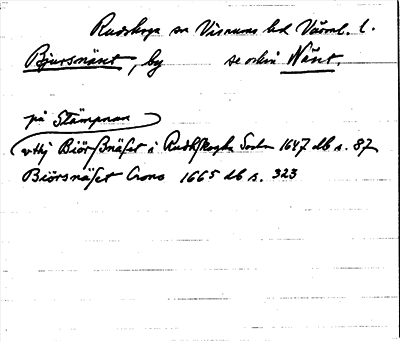 Rudskoga sn Visnums hd Värml. l.
Bjursnäset, by se också Näset.
på Stämpnan
vthj Biörßnäset i Rudhskogha Sochn 1647 db s. 87
Biörsnäset Crono 1665 db s. 323